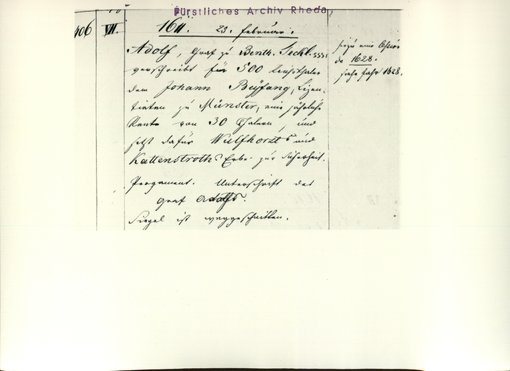 Fürstliches Archiv Rheda
406 VII. 1611. 23. Februar.
Adolf, Graf zu Benth. Teckl. sss:
verschreibt für 500 Reichsthaler
dem Johann Büfang, Licen-
tiaten zu Münster, eine jährliche
Rente von 30 Thalern, und
setzt dafür Wulfhorsts und
Kattenstroths Erbe zur Sicherheit.
Pergament. Unterschrift des
Graf Adolfs.
Siegel ist weggeschnitten.
hiezu eine
de 1628.
siehe Jahr 1628.